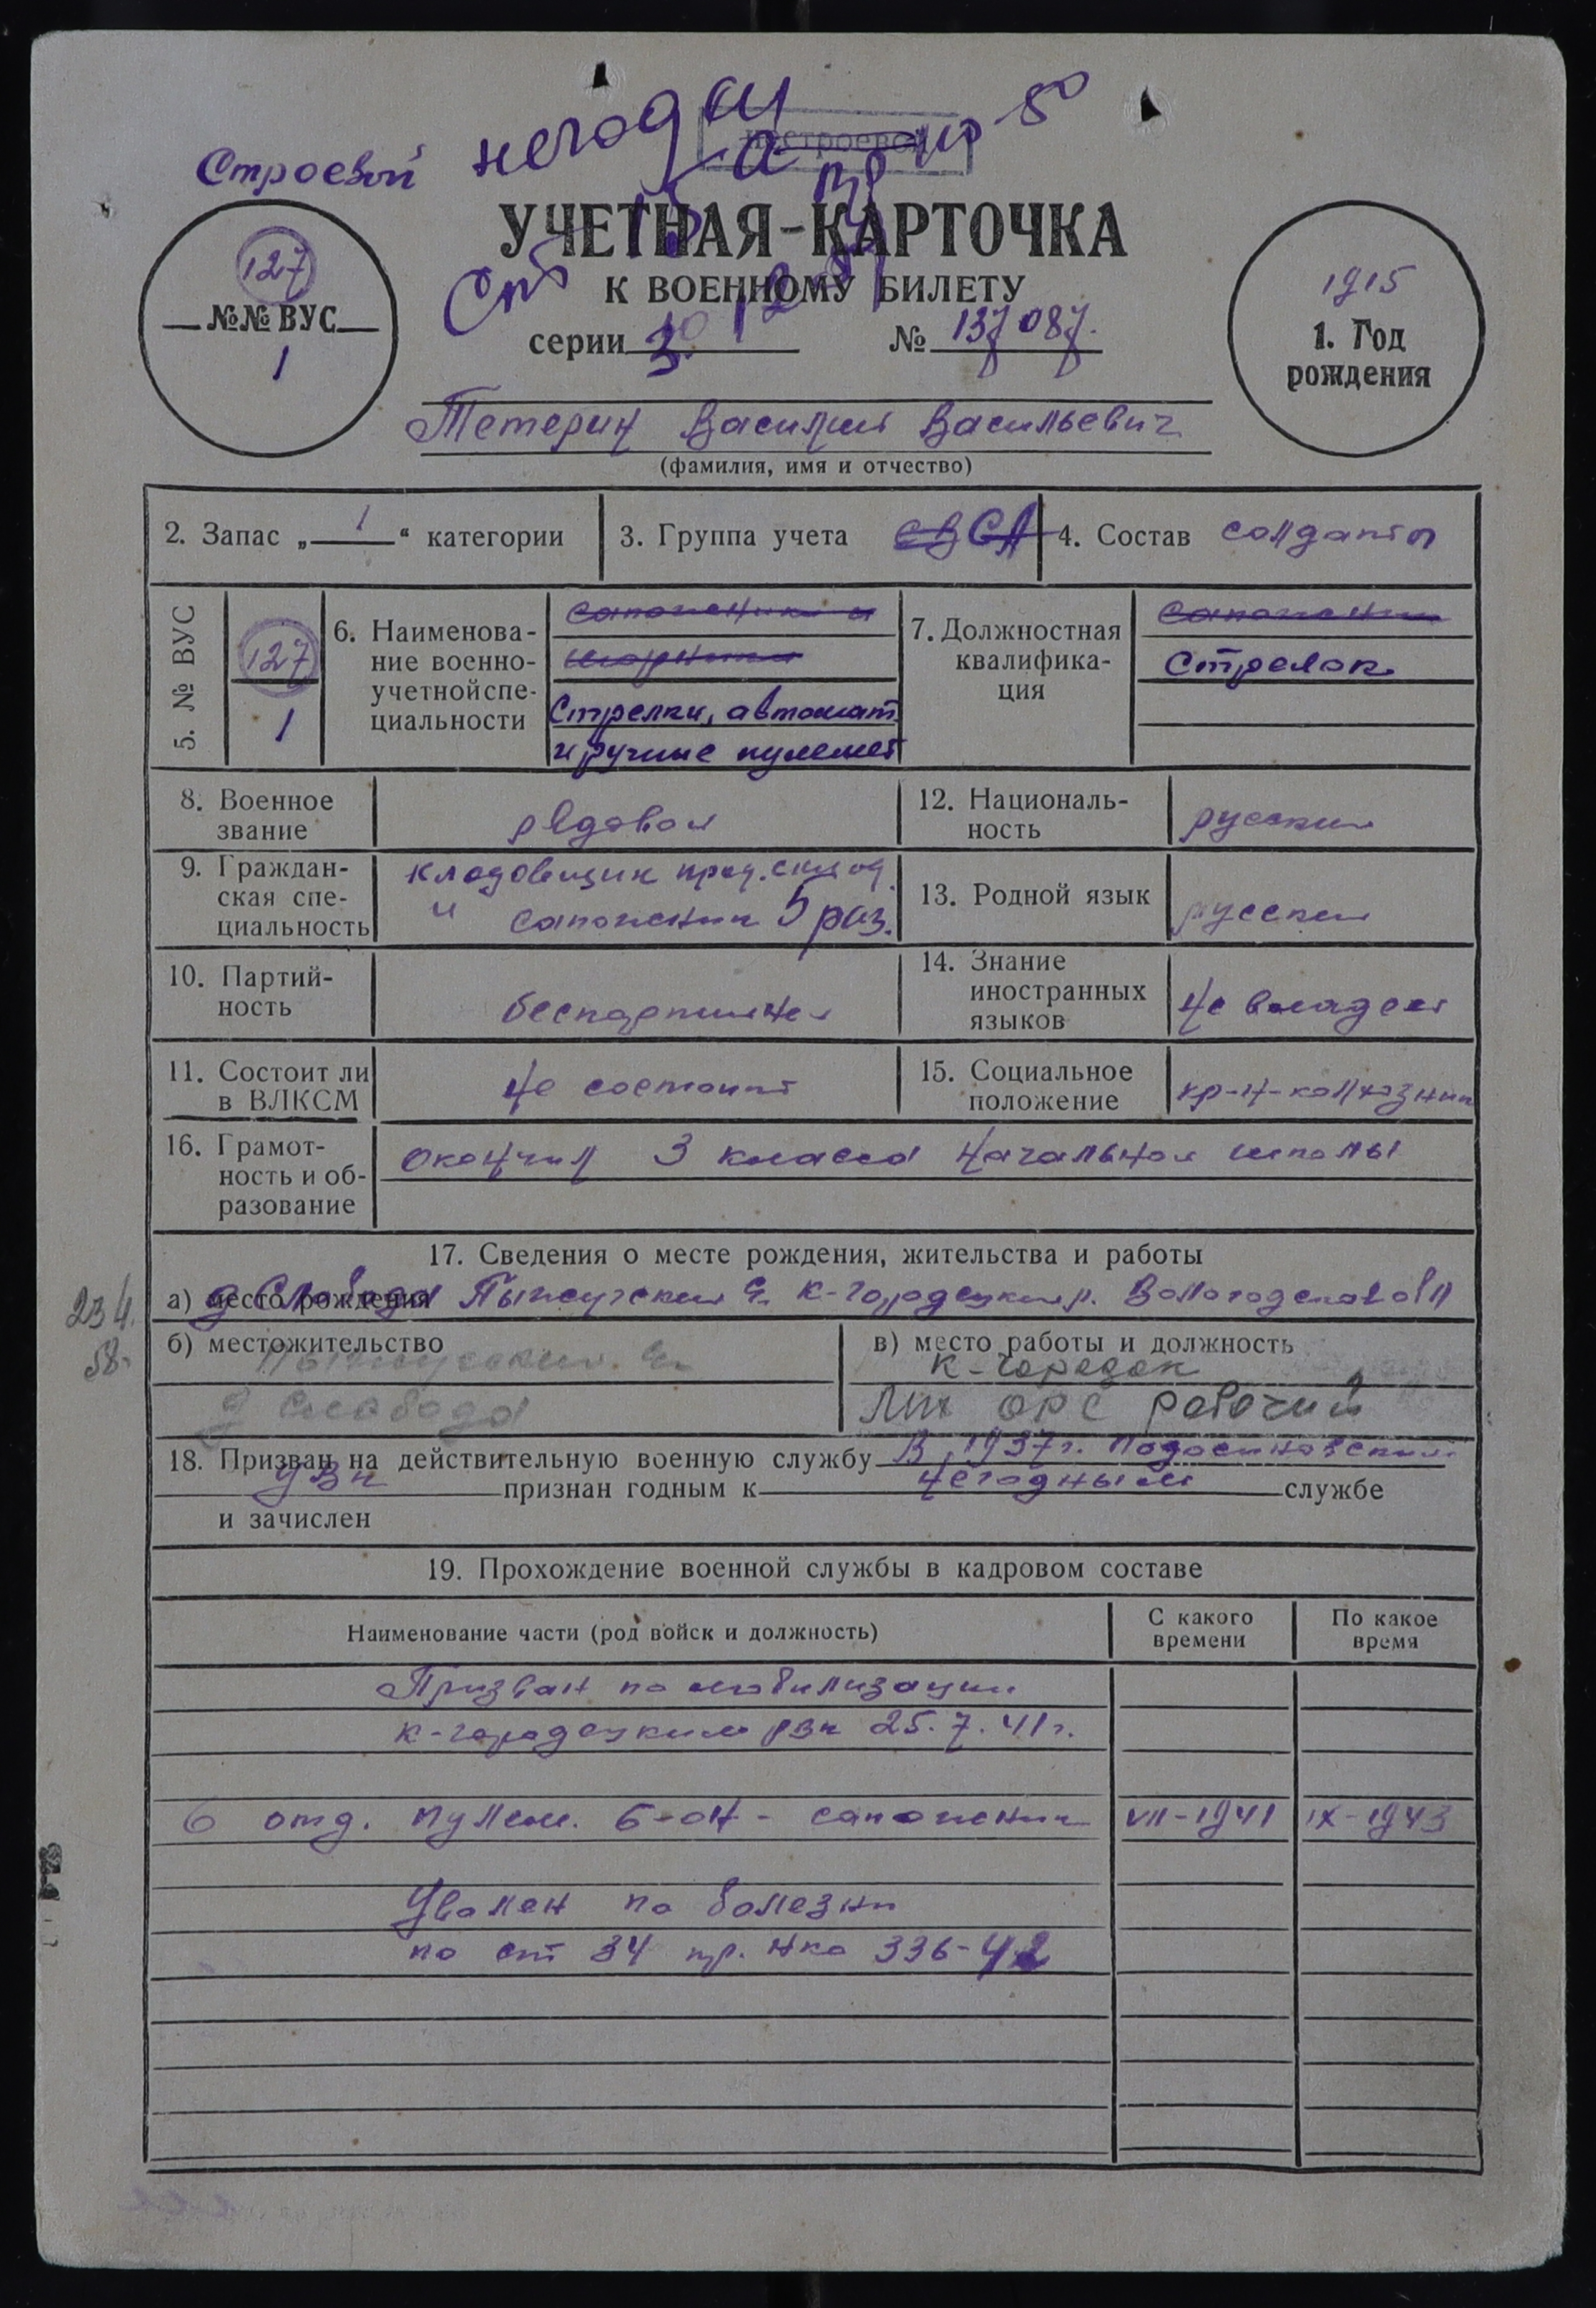 негодн
нестроевой
Строевой
УЧЕТНАЯ-КАРТОЧКА
К ВОЕННОМУ БИЛЕТУ
серии № 137087.
127
№№ ВУС
1
1915
1. Год
рождения
Тетерин Василий Васильевич
(фамилия, имя и отчество)
2. Запас „ 1 “ категории
3. Группа учета СА
4. Состав солдаты
5. № ВУС
127
1
6. Наименова-
ние военно-
учетной спе-
циальности
сапожники и
шорники
Стрелки, автомат.
и ручные пулемет
7. Должностная
квалифика-
ция
сапожник
Стрелок
8. Военное
звание
рядовой
12. Националь-
ность
русский
9. Граждан-
ская спе-
циальность
кладовщик прод. склад.
и сапожник 5 раз.
13. Родной язык
русский
10. Партий-
ность
беспартийный
14. Знание
иностранных
языков
не владеет
11. Состоит ли
в ВЛКСМ
не состоит
15. Социальное
положение
кр-н-колхозник
16. Грамот-
ность и об-
разование
окончил 3 класса начальной школы
17. Сведения о месте рождения, жительства и работы
234.
58.
а) место рождения д Слобода Пыжугский с. К-Городецкий р. Вологодской обл
б) местожительство
Пыжугский с.
д Слобода
в) место работы и должность
К-Городок
ЛПХ ОРС рабочий
18. Призван на действительную военную службу В 1937г. Подосиновский
РВК признан годным к негодным службе
и зачислен
19. Прохождение военной службы в кадровом составе
Наименование части (род войск и должность)
С какого
времени
По какое
время
Призван по мобилизации
К-Городецким РВК 25.7.41г.
6 отд. пулем. б-он - сапожник VII-1941 IX-1943
Уволен по болезни
по ст 34 пр. НКО 336-42